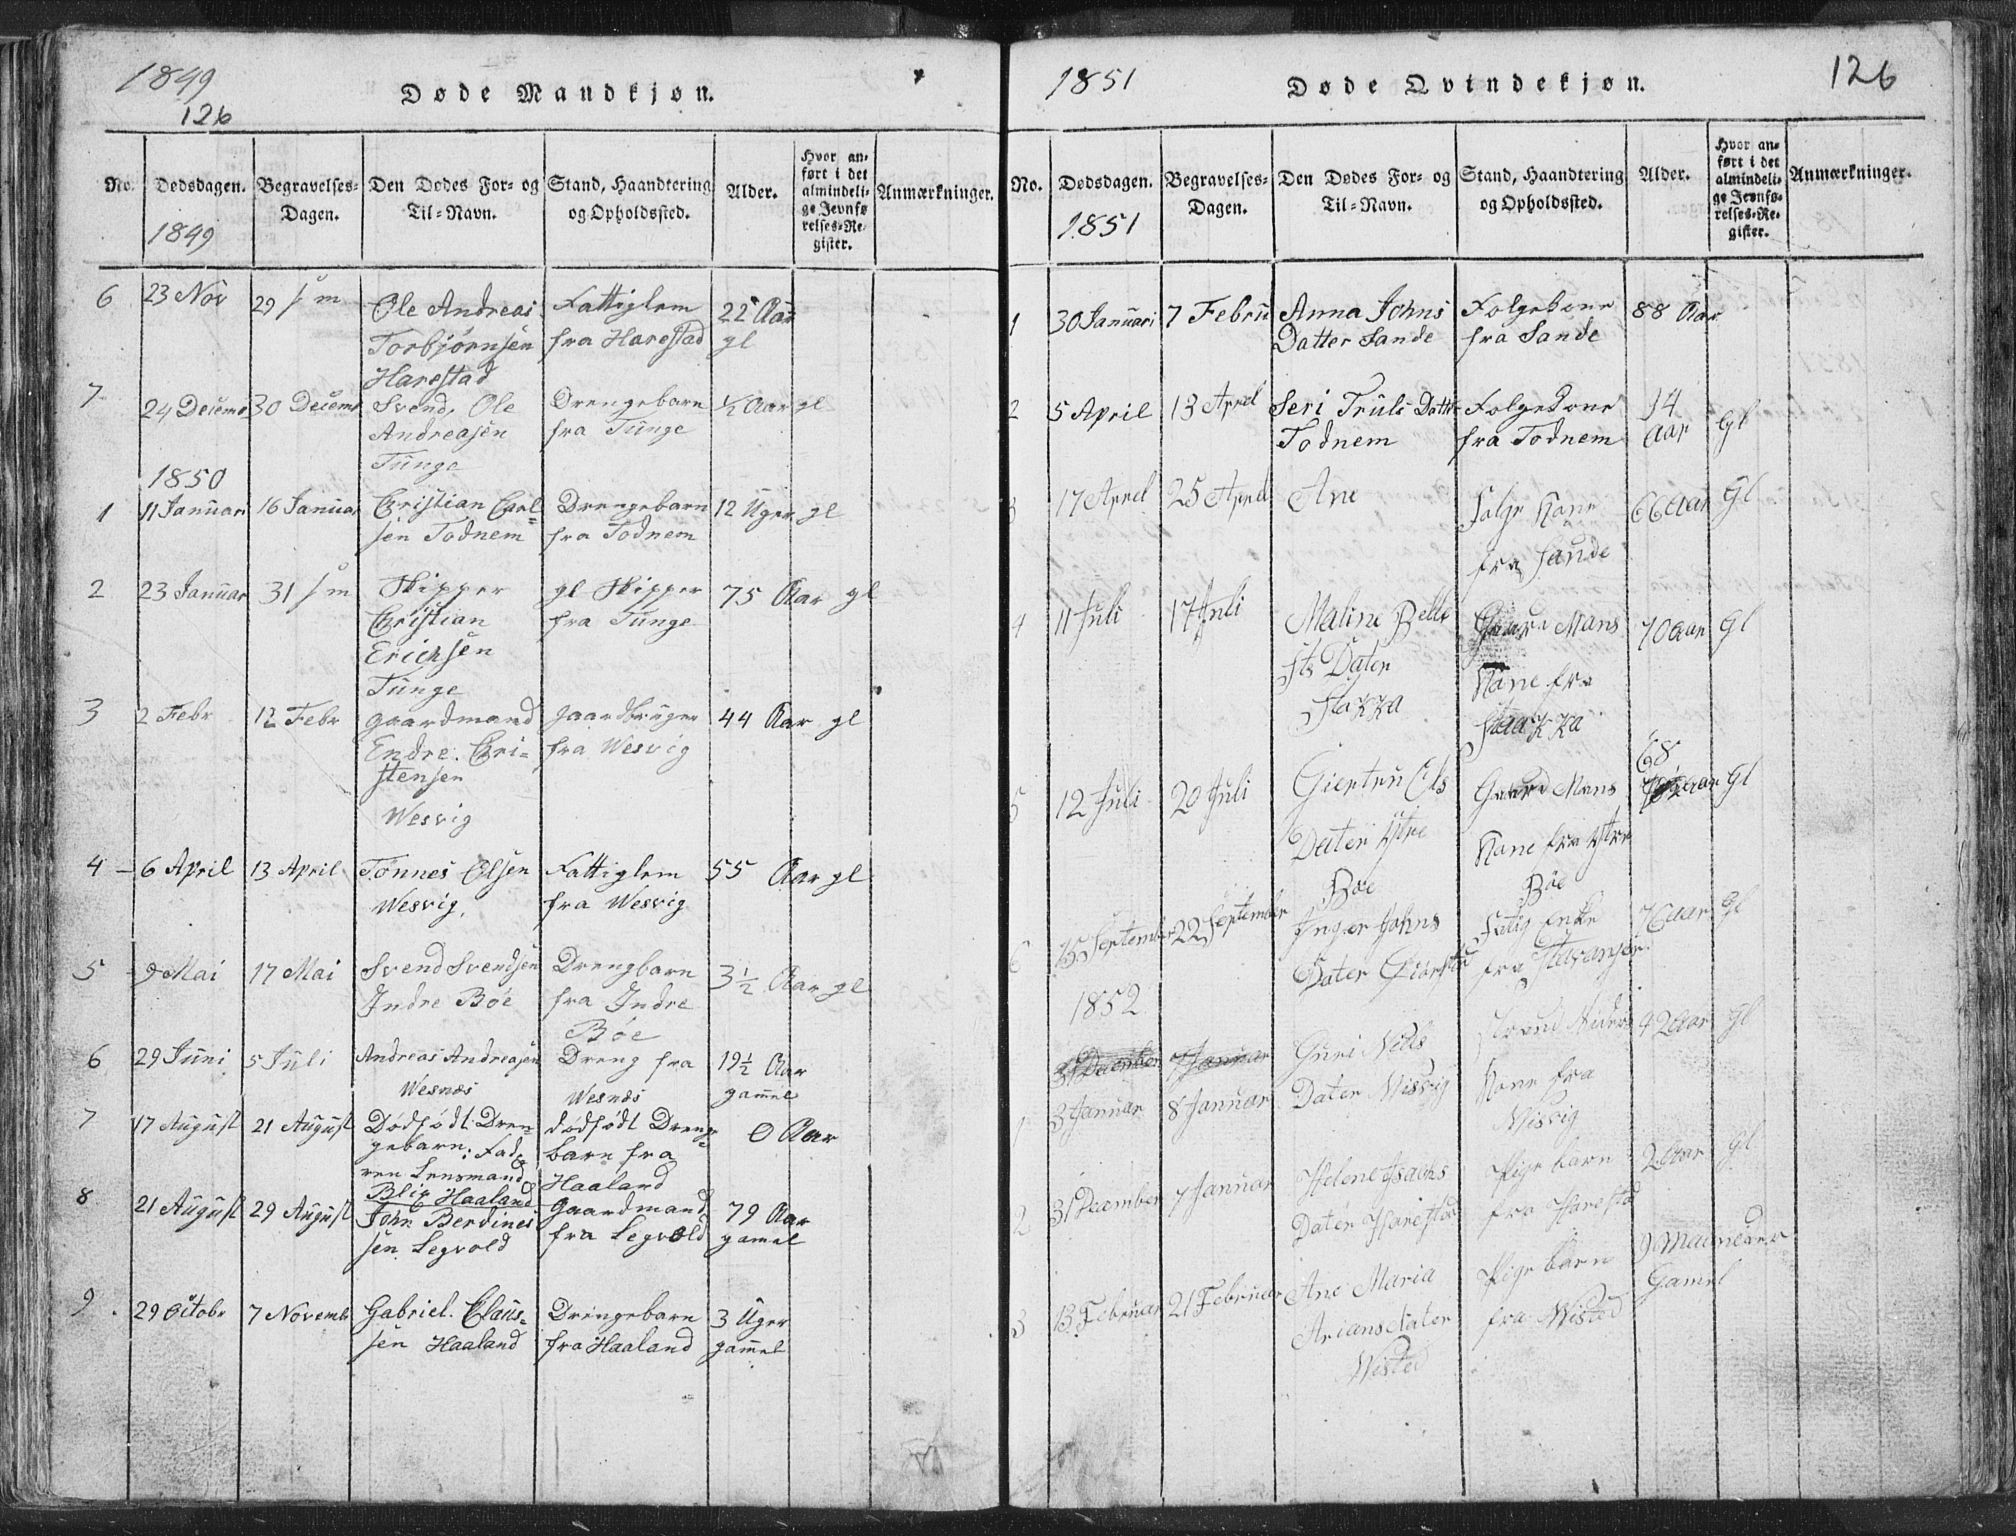 1849
126
Døde Mandkjøn.
No. Dødsdagen. Begravelses-Dagen. Den Dødes For- og Til-Navn. Stand, Haandtering og Opholdssted. Alder. Hvor anført i det almindelige Jevnførelses-Register. Anmærkninger.
1849
6 23 Nov 29 s m Ole Andreas Fattiglem 22 Aar
Torbjørnsen fra Harestad gl
Harestad
7 24 Decemb 30 Decemb Svend. Ole Drengebarn ½ Aar gl
Andreasen fra Tunge
Tunge
1850
1 11 Januar 16 Januar Christian Carl= Drengebarn 12 Uger gl
sen Todnem fra Todnem
2 23 Januar 31 s m Skipper gl Skipper 75 Aar gl
Christian fra Tunge
Erichsen
Tunge
3 2 Febr 12 Febr gaardmand gaardbruger 44 Aar gl
Endre. Chri- fra Wesvig
stensen
Wesvig
4 – 6 April 13 April Tønnes Olsen Fattiglem 55 Aar gl
Wesvig. fra Wesvig
5 - 9 Mai 17 Mai Svend Svendsen Drengbarn 3½ Aar gl
Indre Bøe fra Indre
Bøe
6 29 Juni 5 Juli Andreas Andreasen Dreng fra 19½ Aar
Wesnæs Wesnæs gammel
7 17 August 21 August Dødfødt Dren- dødfødt Dreng= 0 Aar
gebarn. Fad- barn fra
ren Lensmand Haaland
Blix Haaland
8 21 August 29 August John Berdines Gaardmand 79 Aar
sen Legvold fra Legvold gamel
9 . 29 Octobr 7 Novemb Gabriel. Claus= Drengebarn 3 Uger
sen Haaland fra Haaland gammel
1851
Døde Qvindekjøn.
126
No. Dødsdagen. Begravelses-Dagen. Den Dødes For- og Til-Navn. Stand, Haandtering og Opholdssted. Alder. Hvor anført i det almindelige Jevnførelses-Register. Anmærkninger.
1851
1 30 Januari 7 Febru Anna Johns Folgekone 88 Aar
Datter Sande fra Sande
2 5 April 13 April Seri Truls Datter Folgekone 14
Todnem fra Todnem Aar gl
3 17 April 25 April Ane Folge Kone 66 Aar Gl
fra Sande
4 11 Juli 17 Juli Maline Belle Gaard Mans 70 aar Gl
sts Dater Kane fra
Stakka Staakka
68
5 12 Juli 20 Juli Giertru Ols Gaard Mans aar Gl
Dater Ytre Kane fra Ytre
Bøe Bøe
6 15 September 22 September Inger Johns Fatig Enke 76 aar Gl
Dater fra Stavanger
1852
31 December 7 Januar Guri Nills 42 aar Gl
1 3 Januar 8 Januar Dater Wisvig Kone fra
Wisvig
2 31 December 7 Januar Helene Isachs Pige barn 2 aar Gl
Dater Harestad fra Harestad
3 13 Februar 21 Februar Ane Maria Pige barn 9 Maaneder
Arians dater fra Wisted Gamel
Wisted